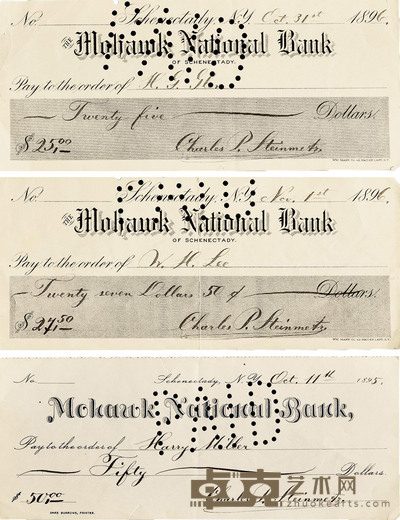 No. Schenectady, N.Y. Oct. 31st 1896.
THE Mohawk National Bank
OF SCHENECTADY.
Pay to the order of
Twenty five Dollars.
$25.00 Charles P. Steinmetz
No. Schenectady, N.Y. Nov. 1st 1896.
THE Mohawk National Bank
OF SCHENECTADY.
Pay to the order of W. H. Lee
Twenty seven Dollars 50 ¢ Dollars.
$27.50 Charles P. Steinmetz
No. Schenectady, N.Y. Oct. 11th 1895.
Mohawk National Bank,
Pay to the order of Harry Miller
Fifty Dollars
$50.00 Charles P. Steinmetz